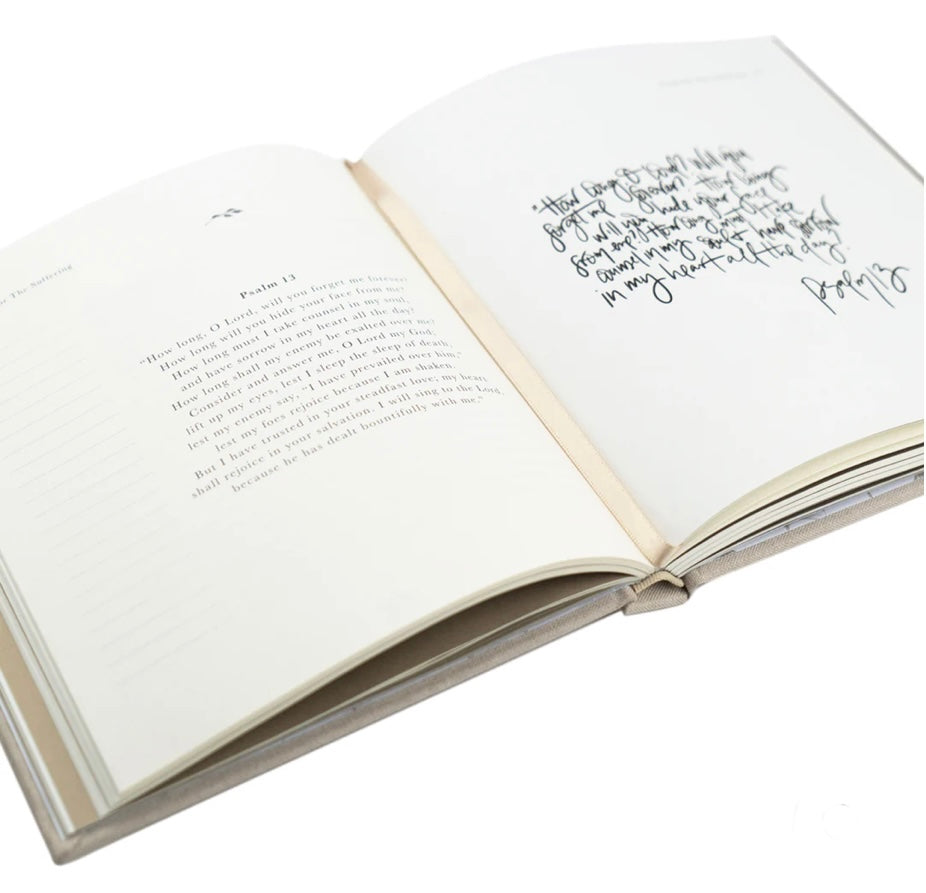 The Suffering
Psalm 13
"How long, O Lord, will you forget me forever?
How long will you hide your face from me?
How long must I take counsel in my soul,
and have sorrow in my heart all the day?
How long shall my enemy be exalted over me?
Consider and answer me, O Lord my God;
lift up my eyes, lest I sleep the sleep of death,
lest my enemy say, "I have prevailed over him,"
lest my foes rejoice because I am shaken.
But I have trusted in your steadfast love; my heart
shall rejoice in your salvation. I will sing to the Lord,
because he has dealt bountifully with me."
"How long O Lord? Will you
forget me forever? How long
will you hide your face
from me? How long must I take
counsel in my soul & have sorrow
in my heart all the day?
Psalm 13